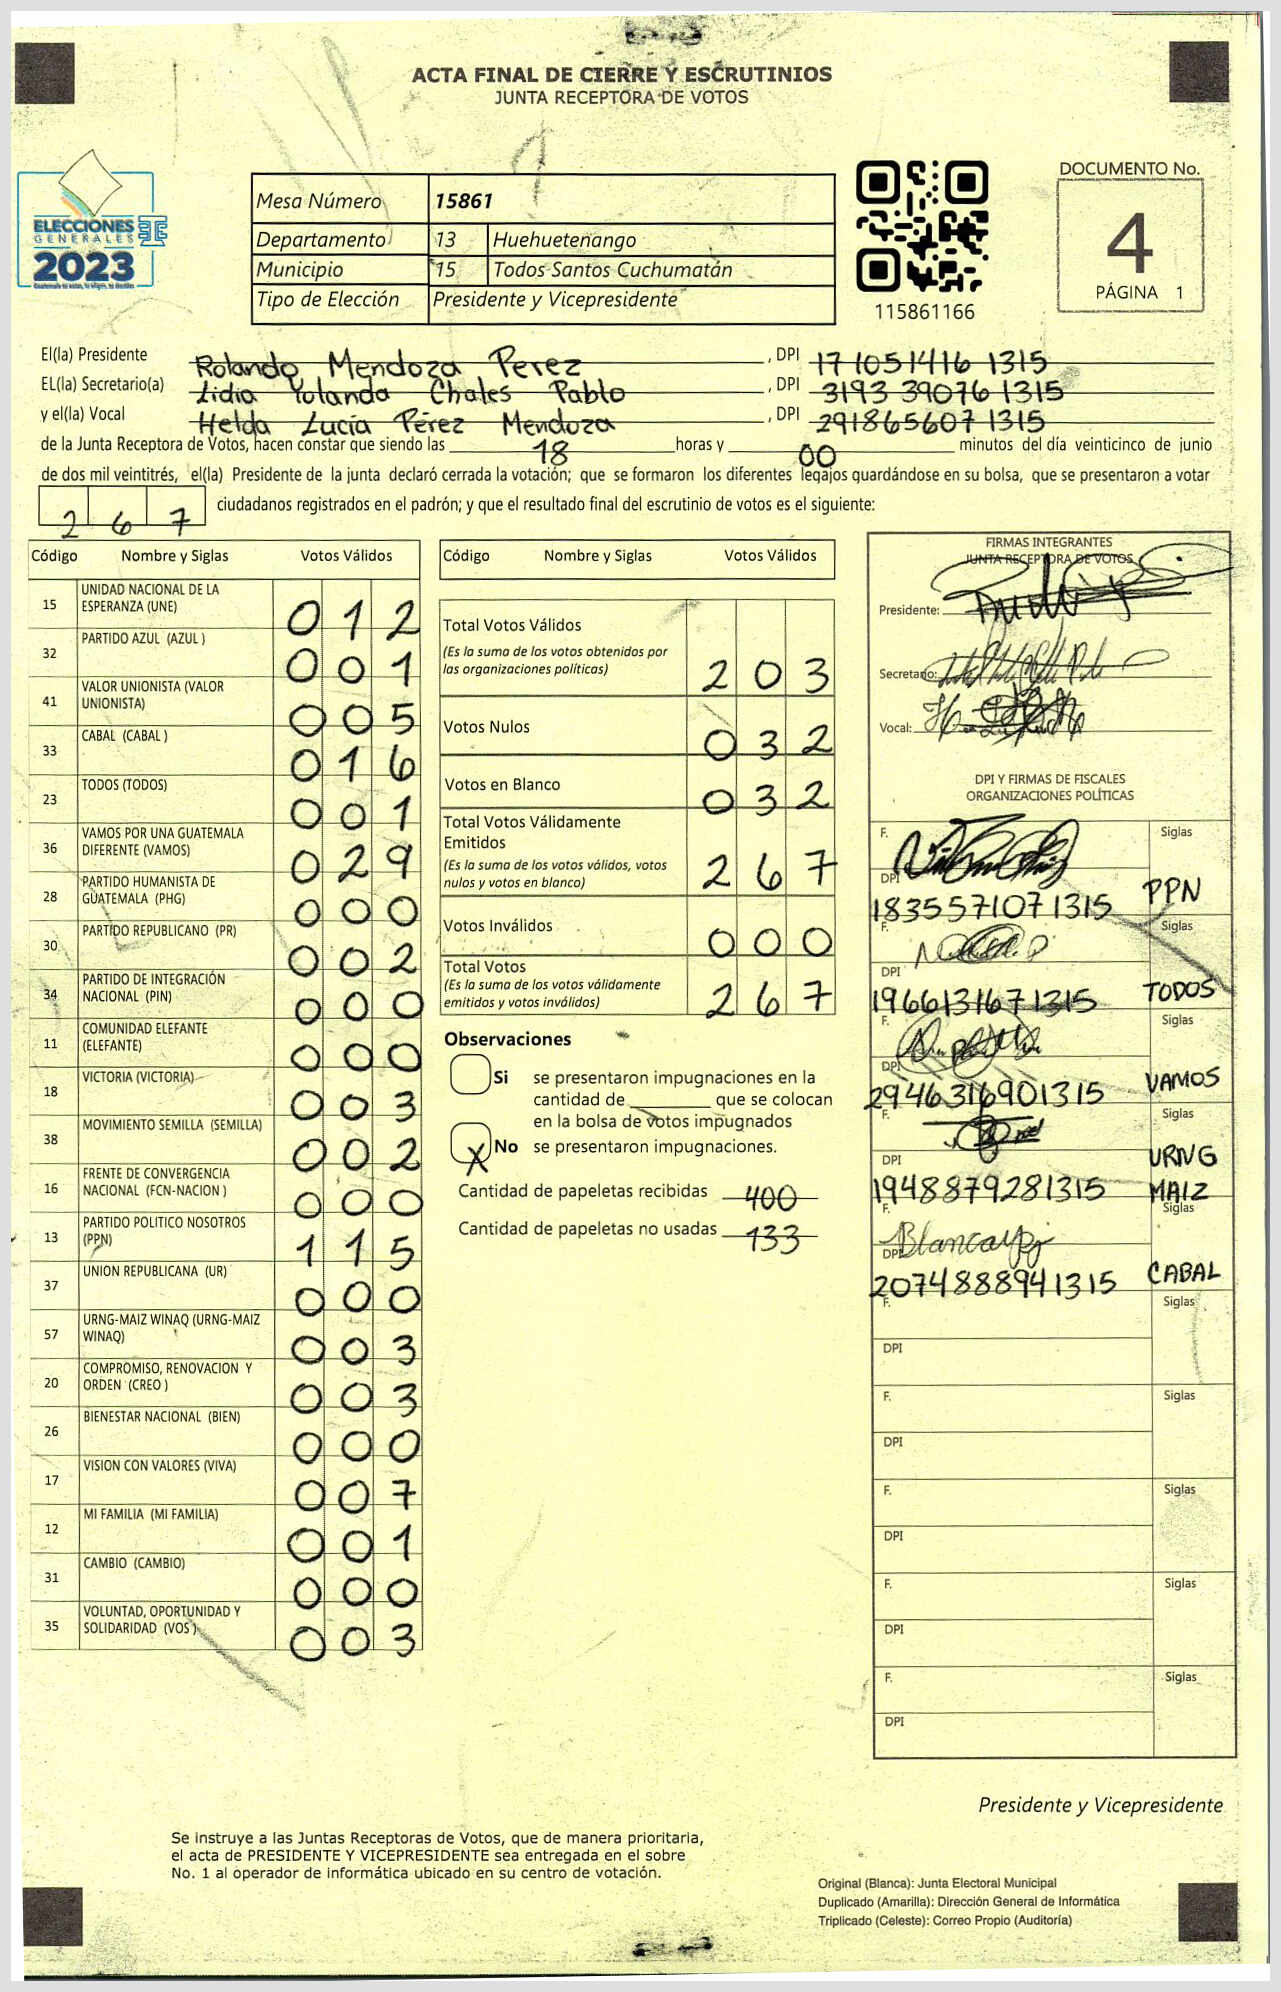 ACTA FINAL DE CIERRE Y ESCRUTINIOS
JUNTA RECEPTORA DE VOTOS
ELECCIONES
GENERALES
2023
Mesa Número 15861
Departamento 13 Huehuetenango
Municipio 15 Todos Santos Cuchumatán
Tipo de Elección Presidente y Vicepresidente
115861166
DOCUMENTO No.
4
PÁGINA 1
El(la) Presidente Rolando Mendoza Perez , DPI 17 1051416 1315
EL(la) Secretario(a) Lidia Yolanda Chales Pablo , DPI 3193 39076 1315
y el(la) Vocal Helda Lucía Pérez Mendoza , DPI 291865607 1315
de la Junta Receptora de Votos, hacen constar que siendo las 18 horas y 00 minutos del día veinticinco de junio
de dos mil veintitrés, el(la) Presidente de la junta declaró cerrada la votación; que se formaron los diferentes legajos quardándose en su bolsa, que se presentaron a votar
267 ciudadanos registrados en el padrón; y que el resultado final del escrutinio de votos es el siguiente:
Código Nombre y Siglas Votos Válidos
15 UNIDAD NACIONAL DE LA
ESPERANZA (UNE) 012
32 PARTIDO AZUL (AZUL ) 001
41 VALOR UNIONISTA (VALOR
UNIONISTA) 005
33 CABAL (CABAL ) 016
23 TODOS (TODOS) 001
36 VAMOS POR UNA GUATEMALA
DIFERENTE (VAMOS) 029
28 PARTIDO HUMANISTA DE
GUATEMALA (PHG) 000
30 PARTIDO REPUBLICANO (PR) 002
34 PARTIDO DE INTEGRACIÓN
NACIONAL (PIN) 000
11 COMUNIDAD ELEFANTE
(ELEFANTE) 000
18 VICTORIA (VICTORIA) 003
38 MOVIMIENTO SEMILLA (SEMILLA) 002
16 FRENTE DE CONVERGENCIA
NACIONAL (FCN-NACION ) 000
13 PARTIDO POLITICO NOSOTROS
(PPN) 115
37 UNION REPUBLICANA (UR) 000
57 URNG-MAIZ WINAQ (URNG-MAIZ
WINAQ) 003
20 COMPROMISO, RENOVACION Y
ORDEN (CREO ) 003
26 BIENESTAR NACIONAL (BIEN) 000
17 VISION CON VALORES (VIVA) 007
12 MI FAMILIA (MI FAMILIA) 001
31 CAMBIO (CAMBIO) 000
35 VOLUNTAD, OPORTUNIDAD Y
SOLIDARIDAD (VOS ) 003
Código Nombre y Siglas Votos Válidos
Total Votos Válidos
(Es la suma de los votos obtenidos por
las organizaciones políticas) 203
Votos Nulos 032
Votos en Blanco 032
Total Votos Válidamente
Emitidos
(Es la suma de los votos válidos, votos
nulos y votos en blanco) 267
Votos Inválidos 000
Total Votos
(Es la suma de los votos válidamente
emitidos y votos inválidos) 267
Observaciones
Si se presentaron impugnaciones en la
cantidad de ________ que se colocan
en la bolsa de votos impugnados
X No se presentaron impugnaciones.
Cantidad de papeletas recibidas 400
Cantidad de papeletas no usadas 133
FIRMAS INTEGRANTES
JUNTA RECEPTORA DE VOTOS
Presidente:
Secretario:
Vocal:
DPI Y FIRMAS DE FISCALES
ORGANIZACIONES POLÍTICAS
F. Siglas
DPI
1835571071315 PPN
F. Siglas
DPI
1966131671315 TODOS
F. Siglas
DPI
2946316901315 VAMOS
F. Siglas
DPI URNG
1948879281315 MAIZ
F. Siglas
DPI
2074888941315 CABAL
F. Siglas
DPI
F. Siglas
DPI
F. Siglas
DPI
F. Siglas
DPI
F. Siglas
DPI
Presidente y Vicepresidente
Se instruye a las Juntas Receptoras de Votos, que de manera prioritaria,
el acta de PRESIDENTE Y VICEPRESIDENTE sea entregada en el sobre
No. 1 al operador de informática ubicado en su centro de votación.
Original (Blanca): Junta Electoral Municipal
Duplicado (Amarilla): Dirección General de Informática
Triplicado (Celeste): Correo Propio (Auditoría)